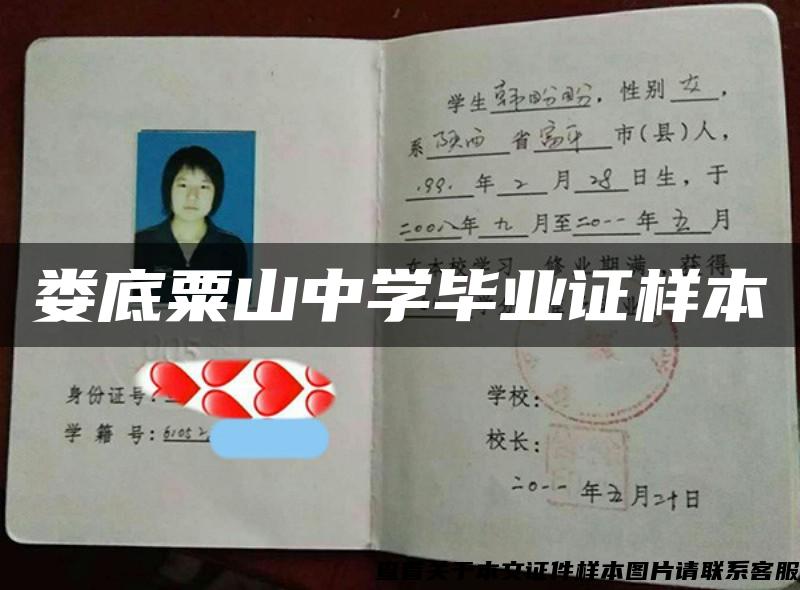 学生韩盼盼，性别女，
系陕西省富平市(县)人，
1991年2月28日生，于
二00八年九月至二0一一年五月
在本校学习，修业期满，获得
娄底粟山中学毕业证样本
身份证号：
学籍号：61052
学校：
校长：
二0一一年五月二十日
查看关于本文证件样本图片请联系客服